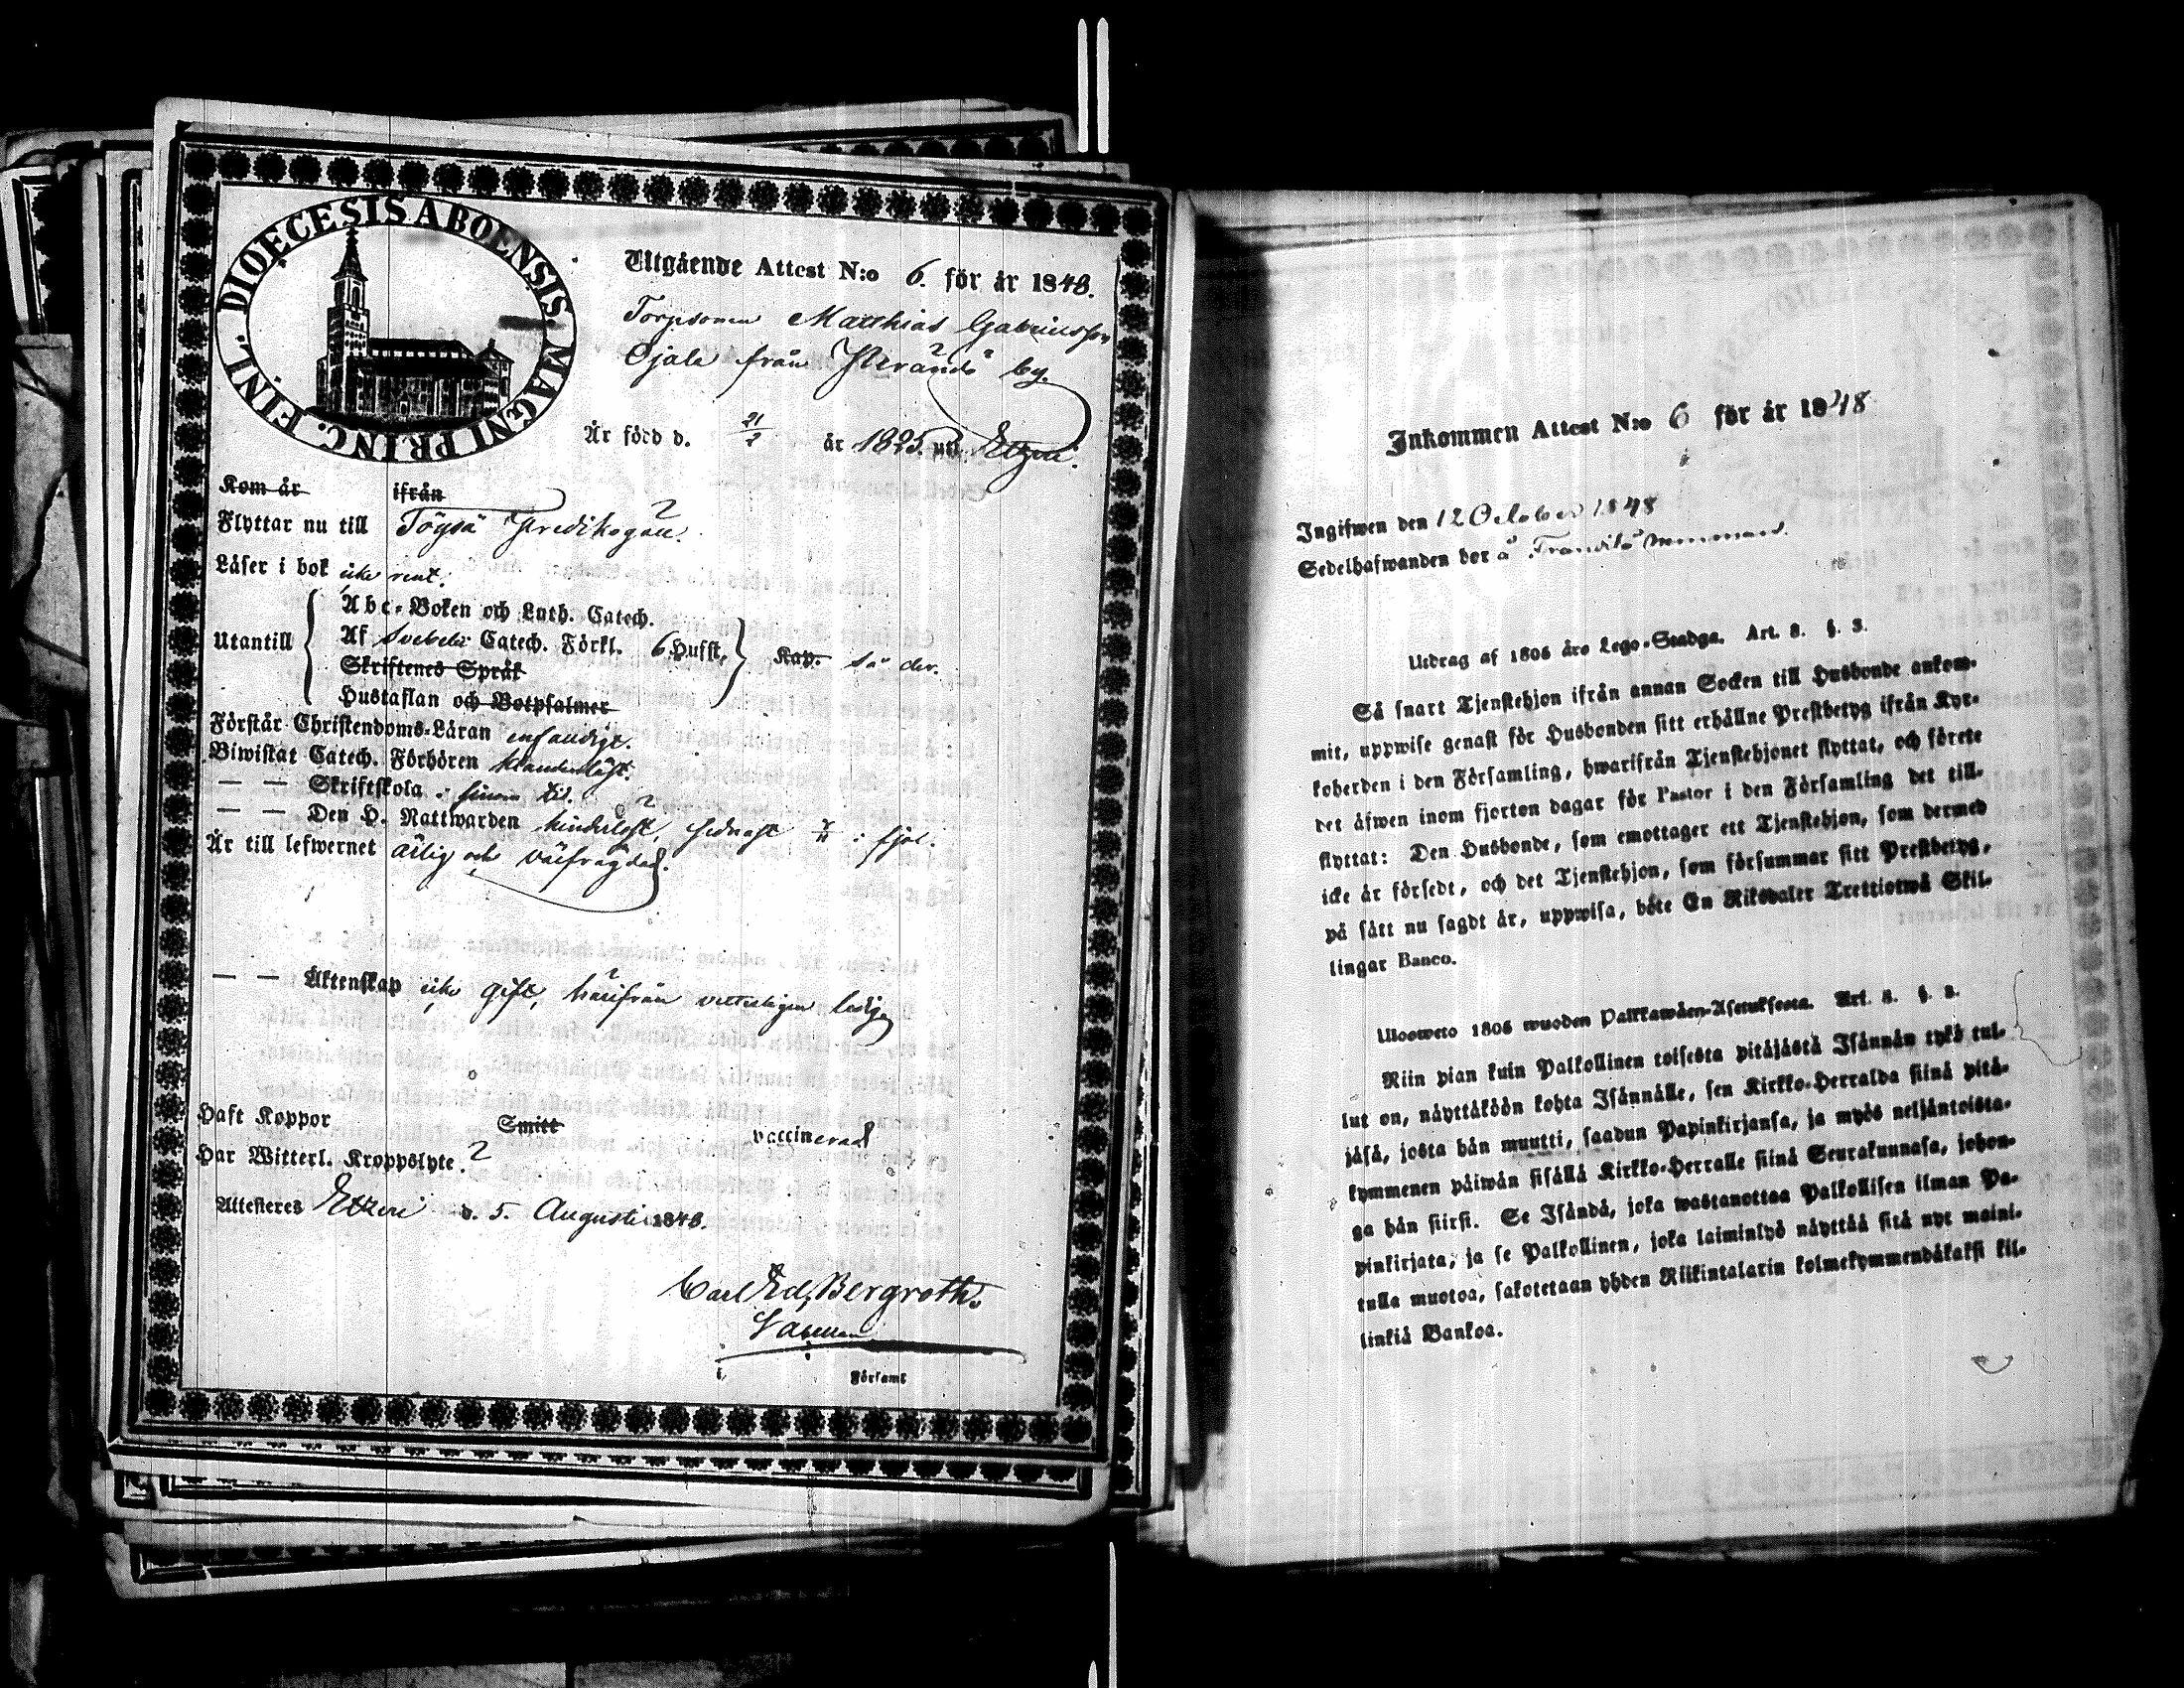 DIOECESIS ABOENSIS. MAGNI PRINC. FINL.
Utgående Attest N:o 6. för år 1848.
Torpsonen Matthias Gabrielsson
Ojala från by.
Är född d. 21/2 år 1825. uti Etzeri.
Kom år ifrån
Flyttar nu till Töysä Predikogäll.
Läser i bok icke rent.
Utantill
Abc-Boken och Luth. Catech.
Af Svebelii Catech. Förkl. 6 Hufst.
Kap. så der.
Skriftenes Språk
Hustaflan och Botpsalmer
Förstår Christendoms-Läran enfaldigt.
Biwistat Catech. Förhören klanderlöst.
— — Skriftskola i sinom tid.
— — Den H. Nattwarden hinderlöst, sednast i fjol.
Är till lefwernet ärlig och välfrägdad.
— — Äktenskap icke gift, härifrån vetterligen ledig
Haft Koppor Smitt vaccinerad
Har Witterl. Kroppslyte.
Attesteras Etzeri d. 5. Augusti 1848.
Carl Ed. Bergroth.
i Församl
Inkommen Attest N:o 6 för år 1848
Ingifwen den 12 October 1848
Sedelhafwanden bor å
Utdrag af 1805 års Lego-Stadga. Art. 8. §. 3.
Så snart Tjenstehjon ifrån annan Socken till Husbonde ankom-
mit, uppwise genast för Husbonden sitt erhållne Prestbetyg ifrån Kyr-
koherden i den Församling, hwarifrån Tjenstehjonet flyttat, och förete
det äfwen inom fjorton dagar för Pastor i den Församling det till-
flyttat: Den Husbonde, som emottager ett Tjenstehjon, som dermed
icke är försedt, och det Tjenstehjon, som försummar sitt Prestbetyg,
på sätt nu sagdt är, uppwisa, böte En Riksdaler Trettiotwå Skil-
lingar Banco.
Ulosweto 1805 wuoden Palkkawäen-Asetuksesta. Art. 8. §. 3.
Niin pian kuin Palkollinen toisesta pitäjästä Isännän tykö tul-
lut on, näyttäköön kohta Isännälle, sen Kirkko-Herralda siinä pitä-
jäsä, josta hän muutti, saadun Papinkirjansa, ja myös neljäntoista-
kymmenen päiwän sisällä Kirkko-Herralle siinä Seurakunnasa, johon-
ga hän siirsi. Se Isändä, joka wastanottaa Palkollisen ilman Pa-
pinkirjata, ja se Palkollinen, joka laiminlyö näyttää sitä nyt maini-
tulla muotoa, sakotetaan yhden Riikintalarin kolmekymmendäkaksi kil-
linkiä Bankoa.